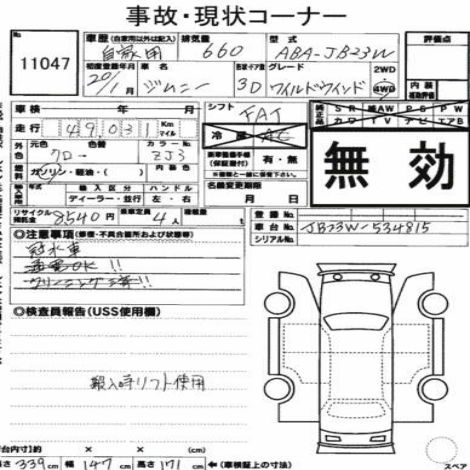 事故・現状コーナー
11047
車歴 (自家用以外は記入) 自家用
排気量 660
型式 ABA-JB23W
評価点
初度登録年月 20/1月
車名 ジムニー
形状・ドア数 3D
グレード ワイルドウインド
2WD
4WD
内装
補助評価
車検 年 月
シフト FAT
純正品 SR 純AW PS PW
カワ TV ナビ エアB
走行 49,031 Km マイル
冷房 AC
外色 元色 クロ 色替 カラーNo. ZJ3
新車整備手帳 (保証書付) 有・無
※種類のみ後日として下さい。
無効
燃料 ガソリン・軽油・( )
名義変更期限 月 日
輸入区分 ディーラー・並行
ハンドル 左・右
リサイクル預託金 8540 円
乗車定員 4 人
積載量
登録No.
車台No. JB23W-534815
シリアルNo.
◎注意事項 (車歴・不具合箇所および状態等)
冠水車
通電OK!!
◎検査員報告(USS使用欄)
搬入時リフト使用
台内寸(約) × ×
長さ 339cm 幅 147cm 高さ 171cm ←(車検証上の寸法)
スペア